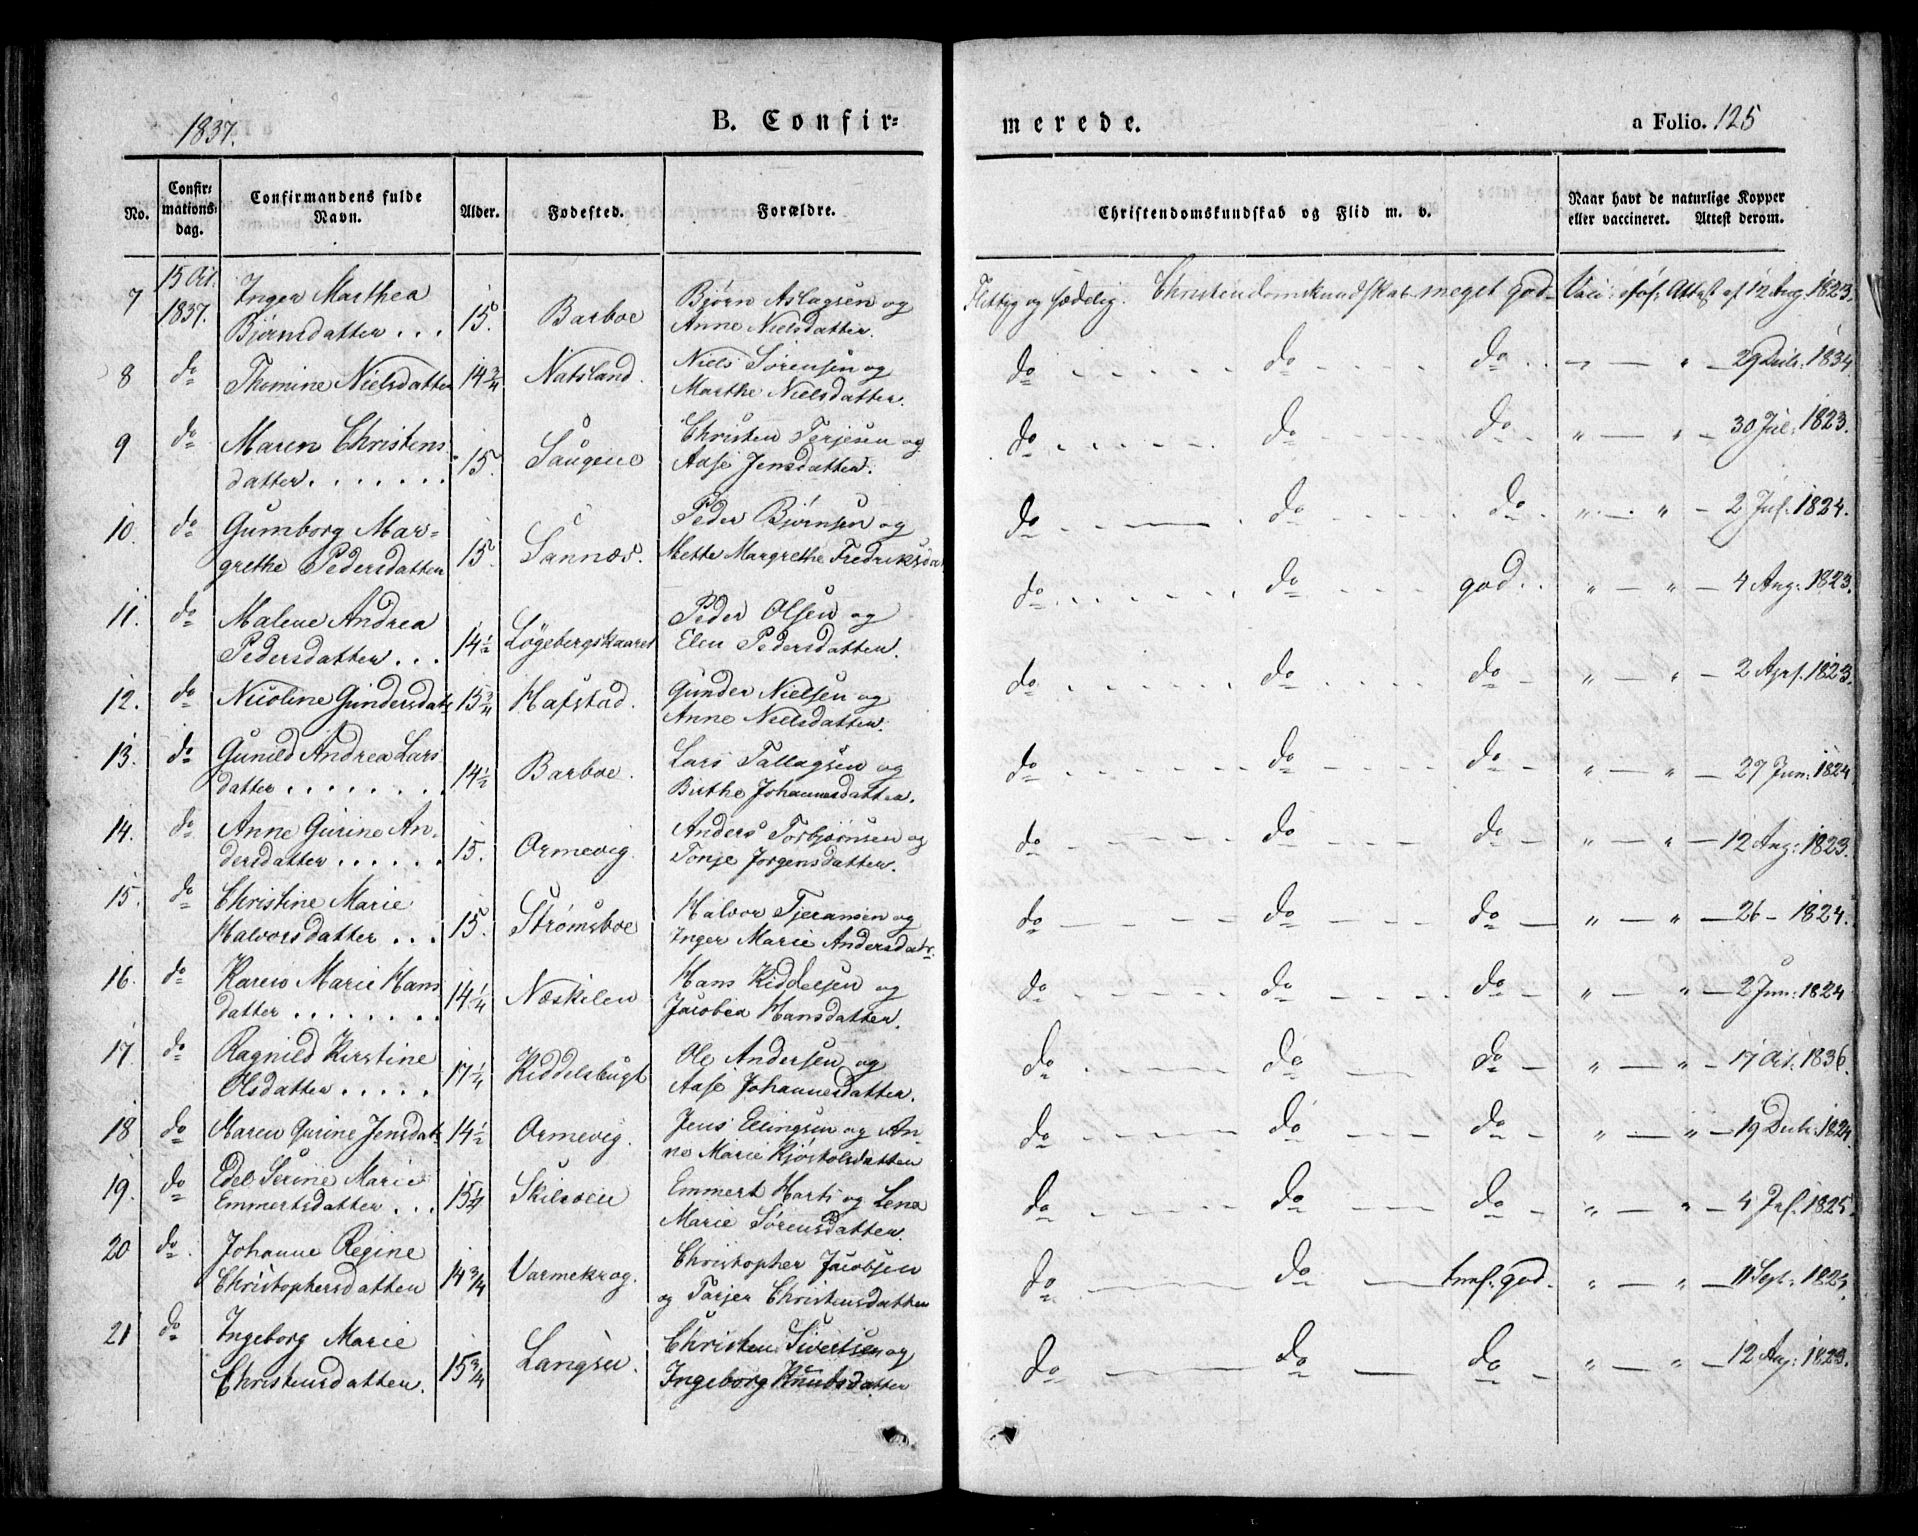 1837.
B. Confir=
merede.
a Folio. 125
No.
Confir=
mations=
dag.
Confirmandens fulde
Navn.
Alder.
Fødested.
Forældre.
Christendomskundskab og Flid m. v.
Naar havt de naturlige Kopper
eller vaccineret. Attest derom.
7 15 Oct. 1837. Inger Marthea
Bjørnsdatter . . . 15. Barboe Bjørn Aslagsen og
Anne Nielsdatter. Flittig og sædelig. Christendomskundskab meget god Attest af 12 Aug. 1823.
8 do Thomine Nielsdatter 14 3/4 Natsland. Niels Sørensen og
Marthe Nielsdatter. do do do 29 Decb. 1834.
9 do Maren Christens
datter. 15. Saugene Christen Terjesen og
Aase Jensdatter. do do do 30 Jul. 1823.
10. do Gumborg Mar=
grethe Pedersdatter 15. Sannæs. Peder Bjørnsen og
Mette Margrethe Fredriksdat do do do 2 Jul. 1824.
11. do Malene Andrea
Pedersdatter . . . 14 1/2 Løgebergskaaret Peder Olsen og
Elen Pedersdatter. do do god. 4 Aug: 1823.
12. do Nicoline Gundersdatr 15 3/4 Hafstad. Gunder Nielsen og
Anne Nielsdatter. do do do 2 Apr. 1823.
13. do Gunild Andrea Lars
datter 14 1/2 Barboe. Lars Tallagsen og
Birthe Johannesdatter. do do do 27 Jun: 1824
14. do Anne Gurine An=
dersdatter 15. Ormevig. Anders Torbjørnsen og
Tonje Jørgensdatter. do do do 12 Aug: 1823.
15. do Christine Marie
Halvorsdatter . . . 15. Strømsboe Halvor Tjeransen og
Inger Marie Andersdatr. do do do 26 - 1824.
16. do Karen Marie Hans
datter 14 1/4 Næskilen Hans Kiddelsen og
Jacobea Hansdatter. do do do 2 Jun: 1824
17. do Ragnild Kirstine
Olsdatter 17 1/4 Kiddelsbugt Ole Andersen og
Aase Johannesdatter. do do do 17 Oct. 1836.
18 do Maren Gurine Jensdatr 14 1/2 Ormevig. Jens Ellingsen og An=
ne Marie Kjøstolsdatter do do do 19 Decb. 1824.
19. do Edel Serine Marie
Emmertsdatter . . . 15 1/4 Skilsøen Emmert Harts og Lena
Marie Sørensdatter. do do do 4 Jul. 1825.
20 do. Johanne Regine
Christophersdatter 14 3/4 Varmekrog. Christopher Jacobsen
og Tarjer Christensdatter do do temf. god. 11 Sept. 1823.
21 do Ingeborg Marie
Christensdatter. 15 3/4 Langsev. Christen Sivertsen og
Ingeborg Knudsdatter do do do 12 Aug: 1823.